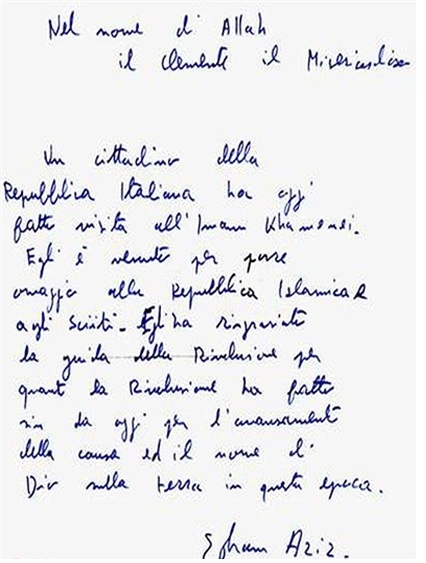 Nel nome di Allah
il Clemente il Misericordioso
Un cittadino della
Repubblica Italiana ha oggi
fatto visita all'Imam Khamenei.
Egli è venuto per porre
omaggio alla Repubblica Islamica e
agli Sciiti. Egli ha ringraziato
la guida della Rivoluzione per
quanto la Rivoluzione ha fatto
sin da oggi per l'avanzamento
della causa ed il nome di
Dio sulla terra in questa epoca.
Aziz.